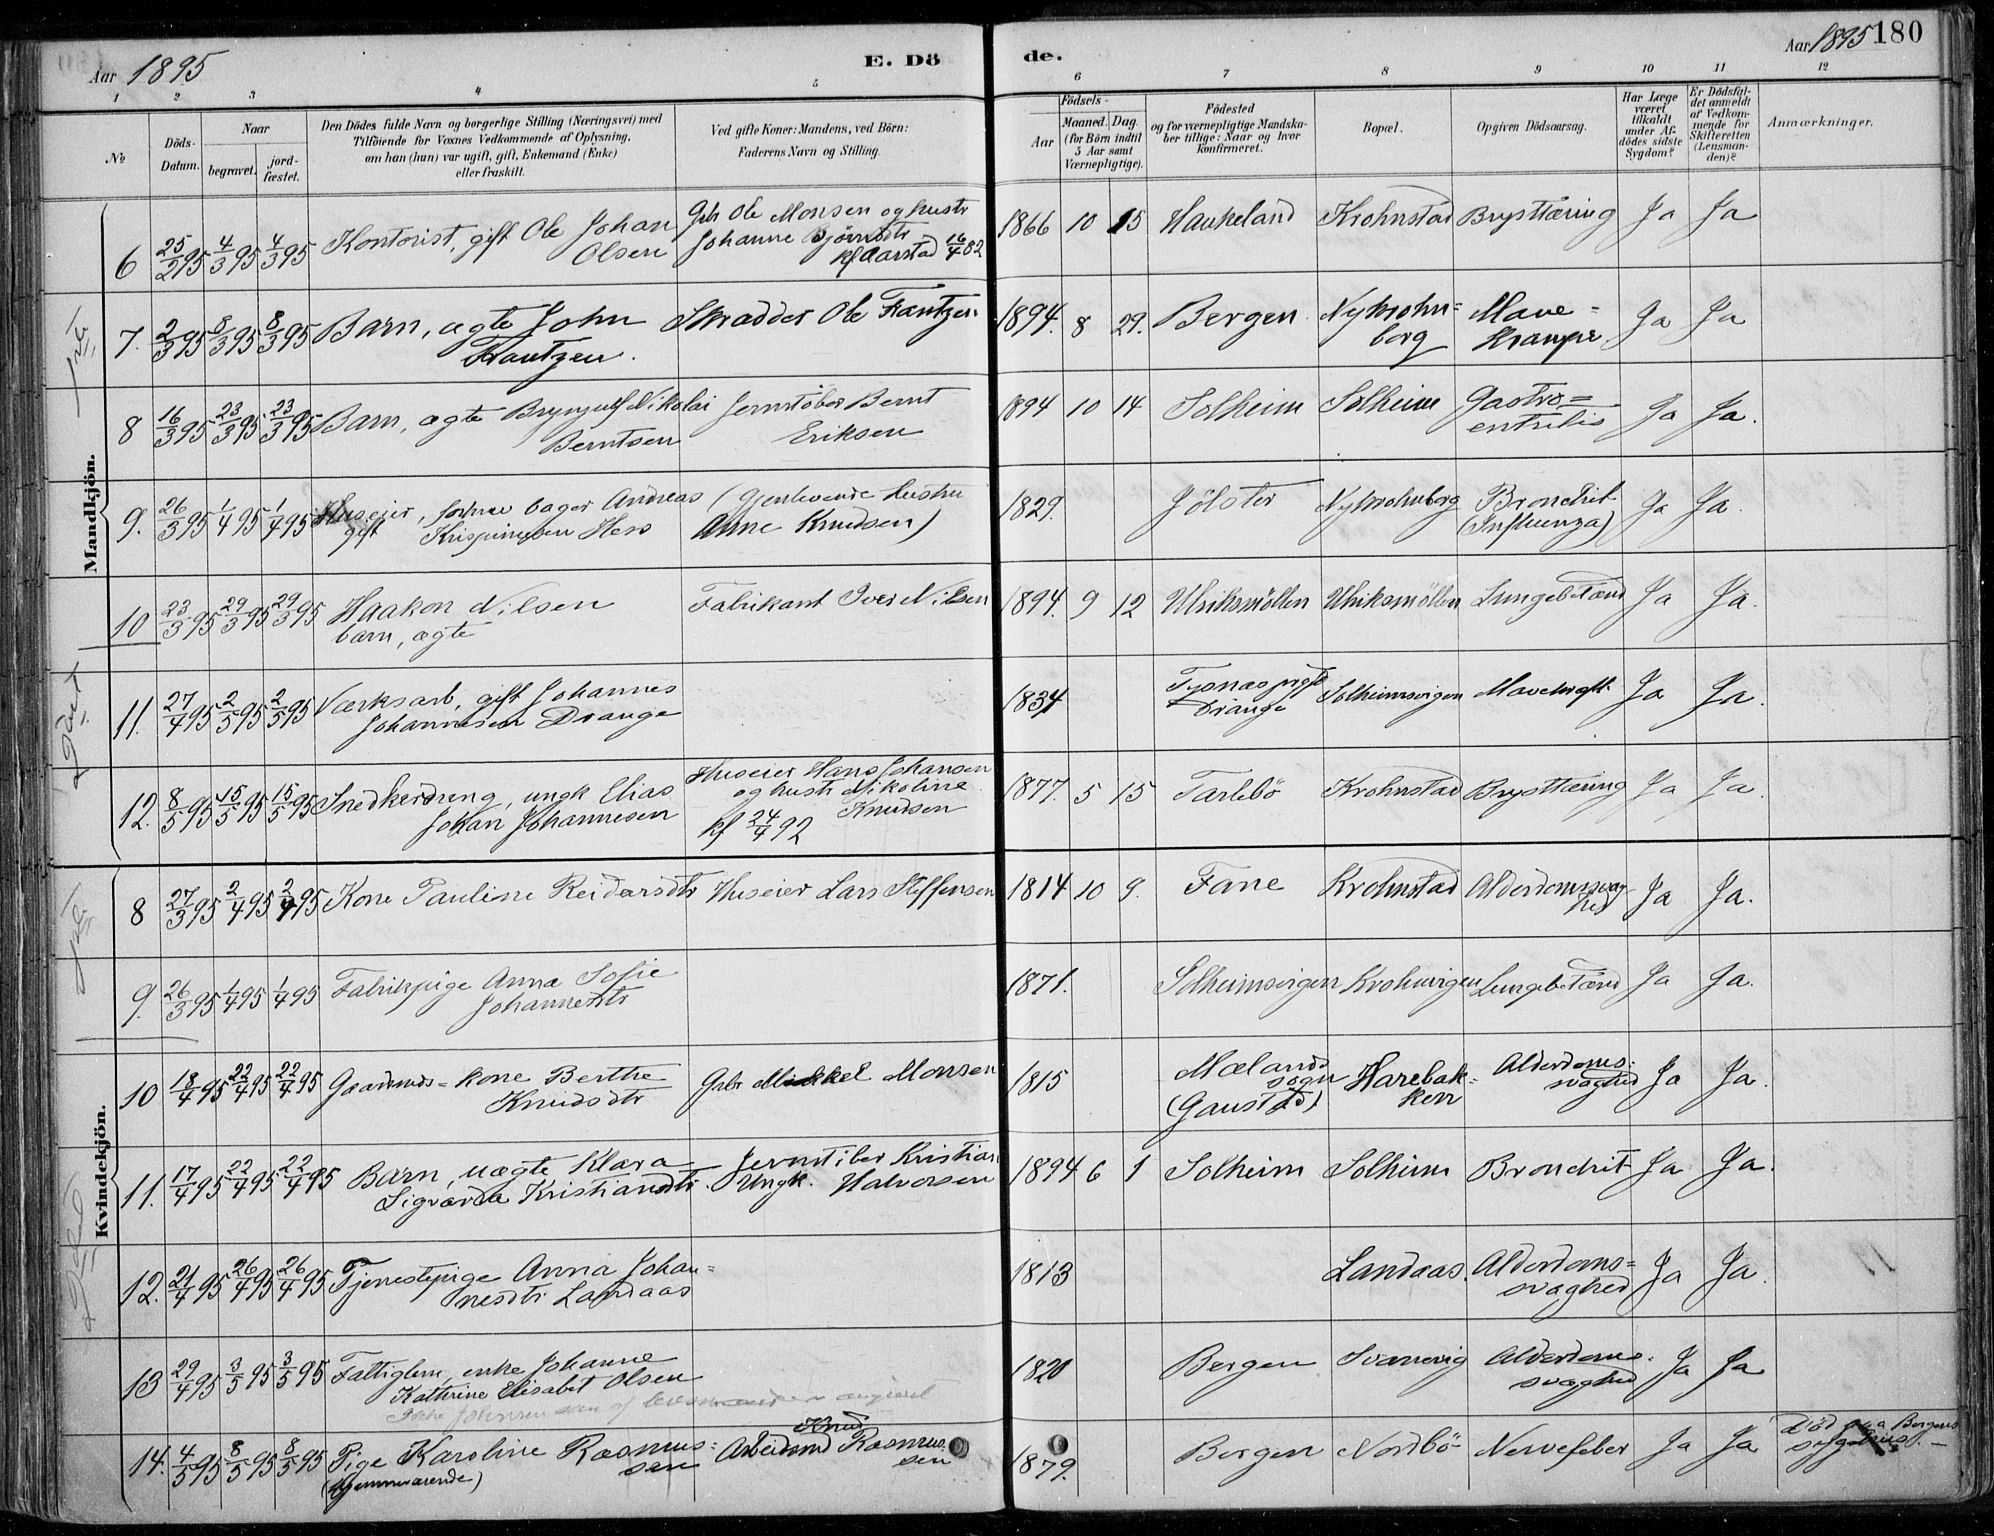 Aar 1895
E. Dö
de.
Aar 1895 180
1 2 3 4 5 6 7 8 9 10 11 12
№
Döds-Datum.
Naar
begravet.
jord-fæstet.
Den Dödes fulde Navn og borgerlige Stilling (Næringsvei) med
Tilföiende for Voxnes Vedkommende af Oplysning,
om han (hun) var ugift, gift, Enkemand (Enke)
eller fraskilt.
Ved gifte Koner: Mandens, ved Börn:
Faderens Navn og Stilling.
Födsels-
Aar
Maaned. Dag
(for Börn indtil
5 Aar samt
Værnepligtige).
Födested
og for værnepligtige Mandska-
ber tillige: Naar og hvor
konfirmeret.
Bopæl.
Opgiven Dödsaarsag.
Har Læge
været
tilkaldt
under Af-
dödes sidste
Sygdom?
Er Dödsfal-
det anmeldt
af Vedkom-
mende for
Skifteretten
(Lensman-
den)?
Anmærkninger.
Mandkjön.
6 25/2 95 4/3 95 4/3 95 Kontorist, gift Ole Johan
Olsen
Gbr Ole Monsen og hustr
Johanne Bjørnsdtr
kf Aarstad 16/4 82
1866 10 15 Haukeland Krohnstad Brysttæring Ja Ja
7. 2/3 95 8/3 95 8/3 95 Barn, ægte John
Frantzen.
Skrædder Ole Frantzen
1894. 8 29. Bergen Nykrohn=
borg
Mave=
krampe
Ja Ja
8 16/3 95 23/3 95 23/3 95 Barn, ægte Brynjulf Nikolai
Berntsen
Jernstöber Bernt
Eriksen
1894 10 14 Solheim Solheim Gastro=
entritis
Ja Ja.
9. 26/3 95 1/4 95 1/4 95 Huseier, forhnv bager Andreas
gift Krispinussen Hess
(Gjenlevende hustru
Anne Knudsen)
1829. Jölster Nykrohnborg Bronchit
(Influenza)
Ja Ja.
10 23/3 95 29/3 95 29/3 95 Haakon Nilsen
barn, ægte
Fabrikant Iver Nilsen
1894. 9 12 Ulriksmöllen Ulriksmöllen Lungebetænd Ja Ja.
11. 27/4 95 2/5 95 2/5 95 Værksarb, gift Johannes
Johannesen Drange
1834 Tysnes prgld
Drange
Solheimsvigen Mavekræft. Ja Ja.
12. 8/5 95 15/5 95 15/5 95 Snedkerdreng, ungk Elias
Johan Johannesen
Huseier Hans Johansen
og hustr Nikoline
Knudsen
kf 24/4 92
1877. 5 15 Tarlebö Krohnstad Brysttæring Ja Ja.
Kvindekjön.
8 27/3 95 2/4 95 2/4 95 Kone Pauline Reidarsdtr Huseier Lars Steffensen
1814 10 9. Fane Krohnstad Alderdomssvag
hed
Ja Ja.
9. 26/3 95 1/4 95 1/4 95 Fabrikpige Anna Sofie
Johannesdtr
1871. Solheimsvigen Krohnvigen Lungebetænd Ja Ja.
10 18/4 95 22/4 95 22/4 95 Gaardmds=kone Berthe
Knudsdtr
Gbr Mikkel Monsen
1815 Mælands
sogn
(Gaustad)
Harebak=
ken
Alderdoms-
svaghed
Ja Ja.
11. 17/4 95 22/4 95 22/4 95 Barn, uægte Klara
Sigvarda Kristiansdtr.
Jernstöber Kristian
Ungk. Halvorsen
1894 6 1 Solheim Solheim Bronchit Ja Ja.
12. 21/4 95 26/4 95 26/4 95 Tjenestepige Anna Johan=
nesdtr Landaas
1813 Landaas. Alderdoms=
svaghed
Ja Ja.
13 29/4 95 3/5 95 3/5 95 Fattiglem, enke Johanne
Kathrine Elisabet Olsen
1820 Bergen Svanevig Alderdoms-
svaghed
Ja Ja
14. 4/5 95 8/5 95 8/5 95 Pige Karoline Rasmus=
sen
(hjemmeværende)
Knud
Arbeidsmd Rasmus-
sen
1879. Bergen Nordbö Nervefeber Ja Ja
Död paa Bergens
sygehus.